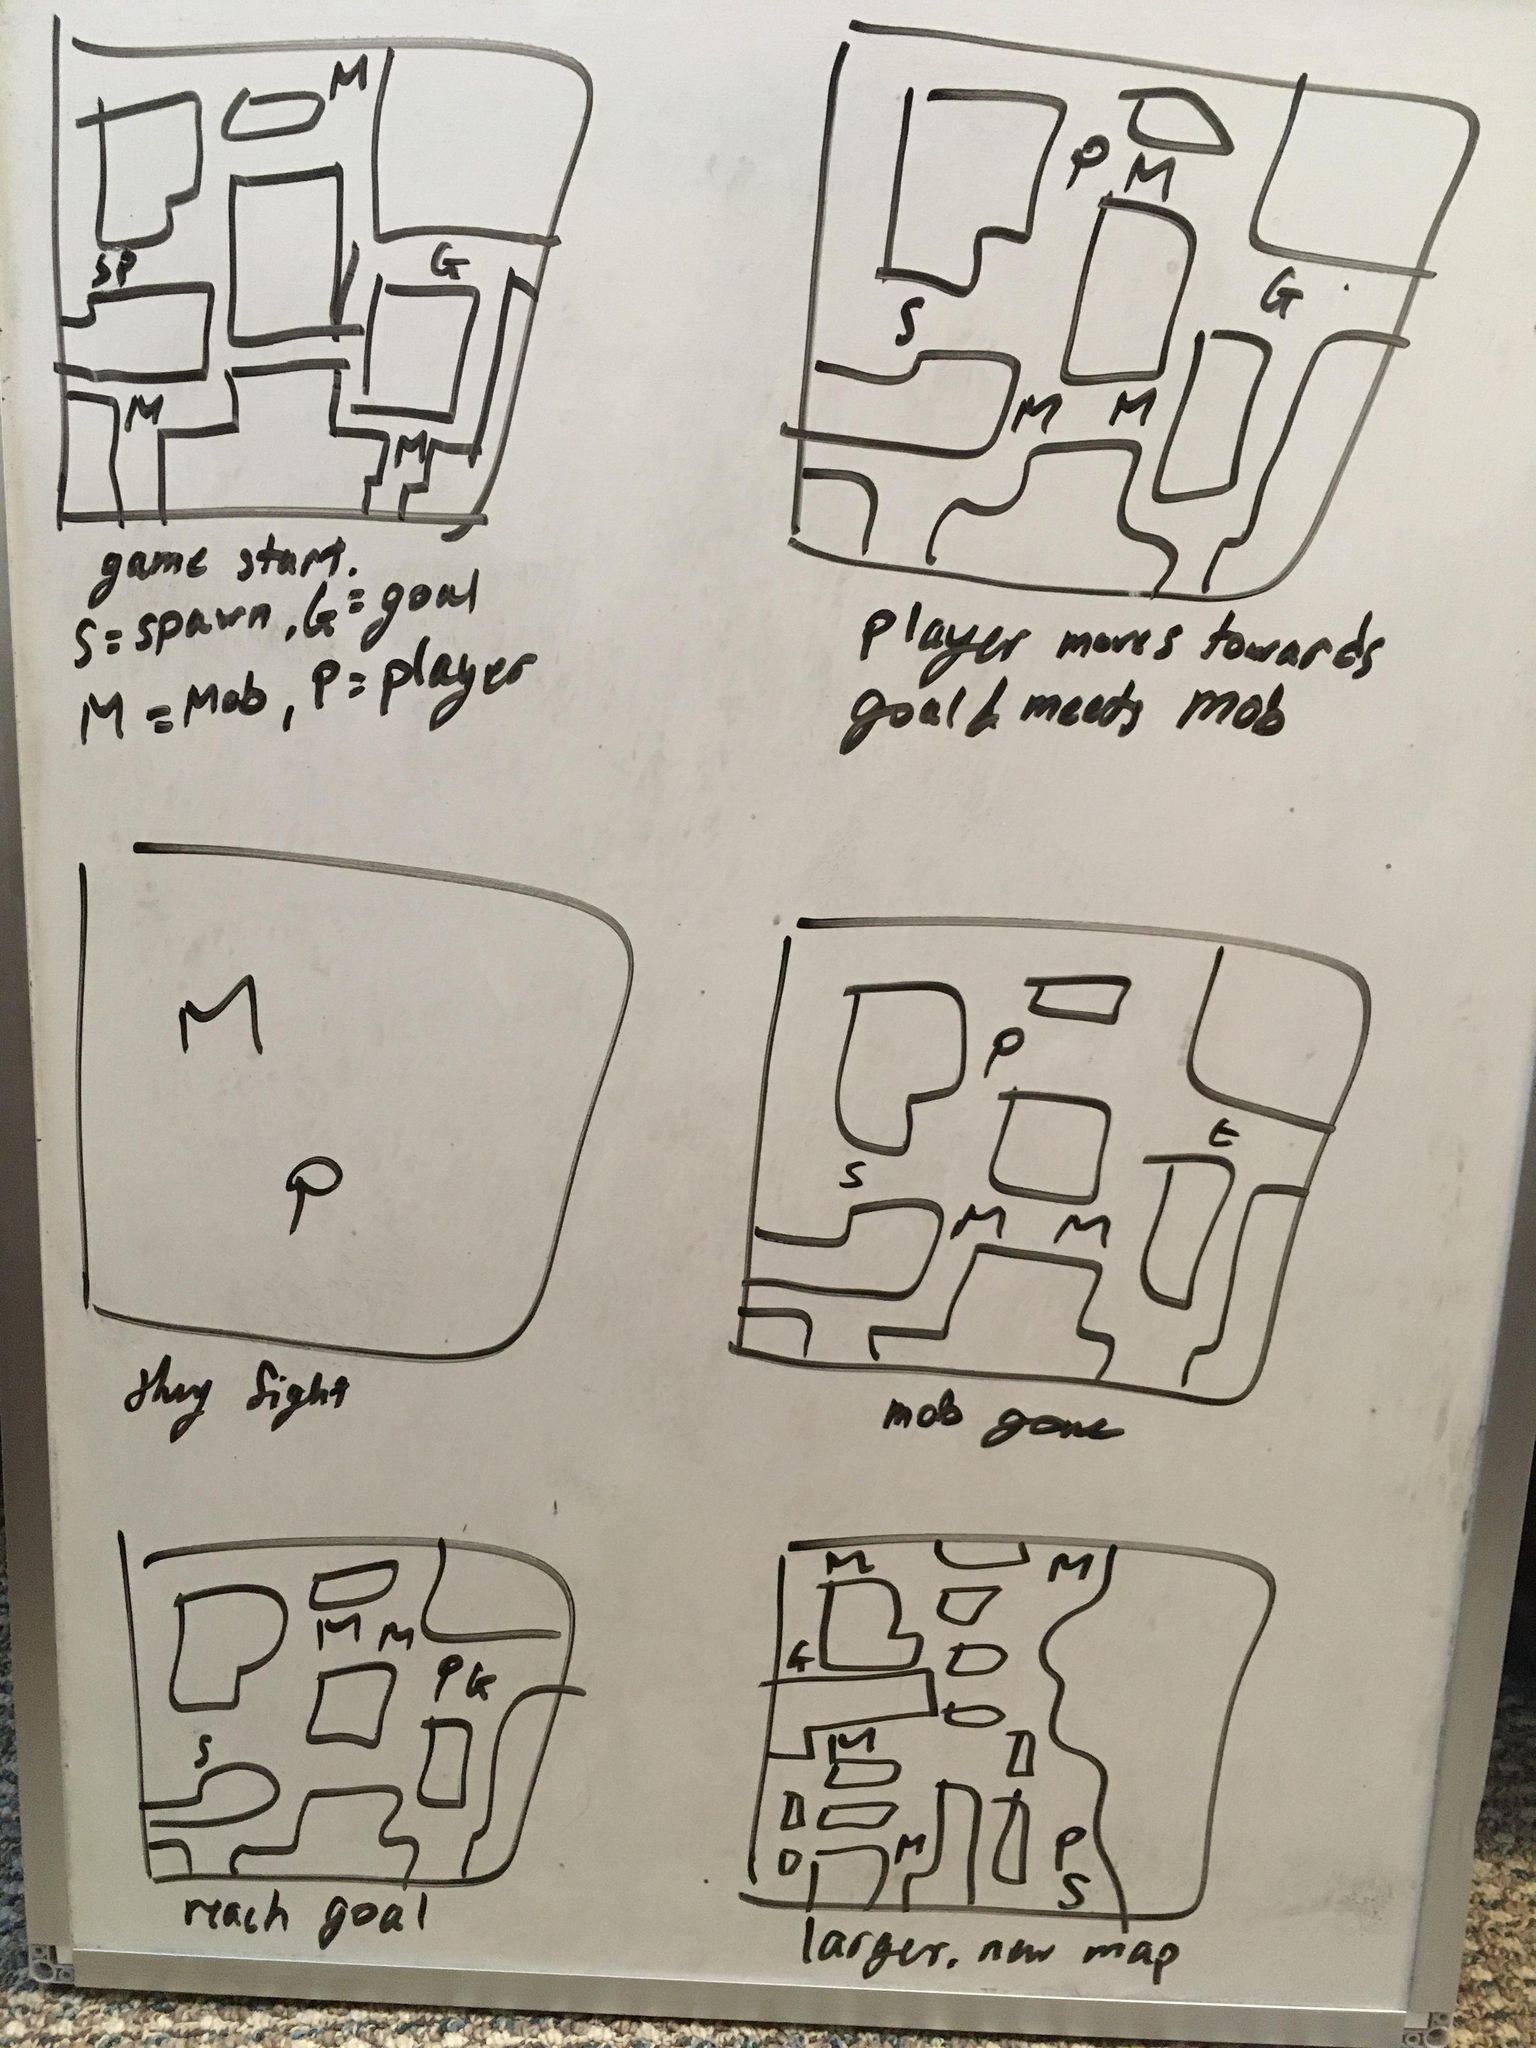 M
SP
G
M
M
game start.
S=spawn, G=goal
M=Mob, P=player
P
M
S
G
M
M
player moves towards
goal & meets mob
M
P
they fight
P
S
G
M
M
mob gone
M
M
P
G
S
reach goal
M
M
G
M
M
P
S
larger, new map